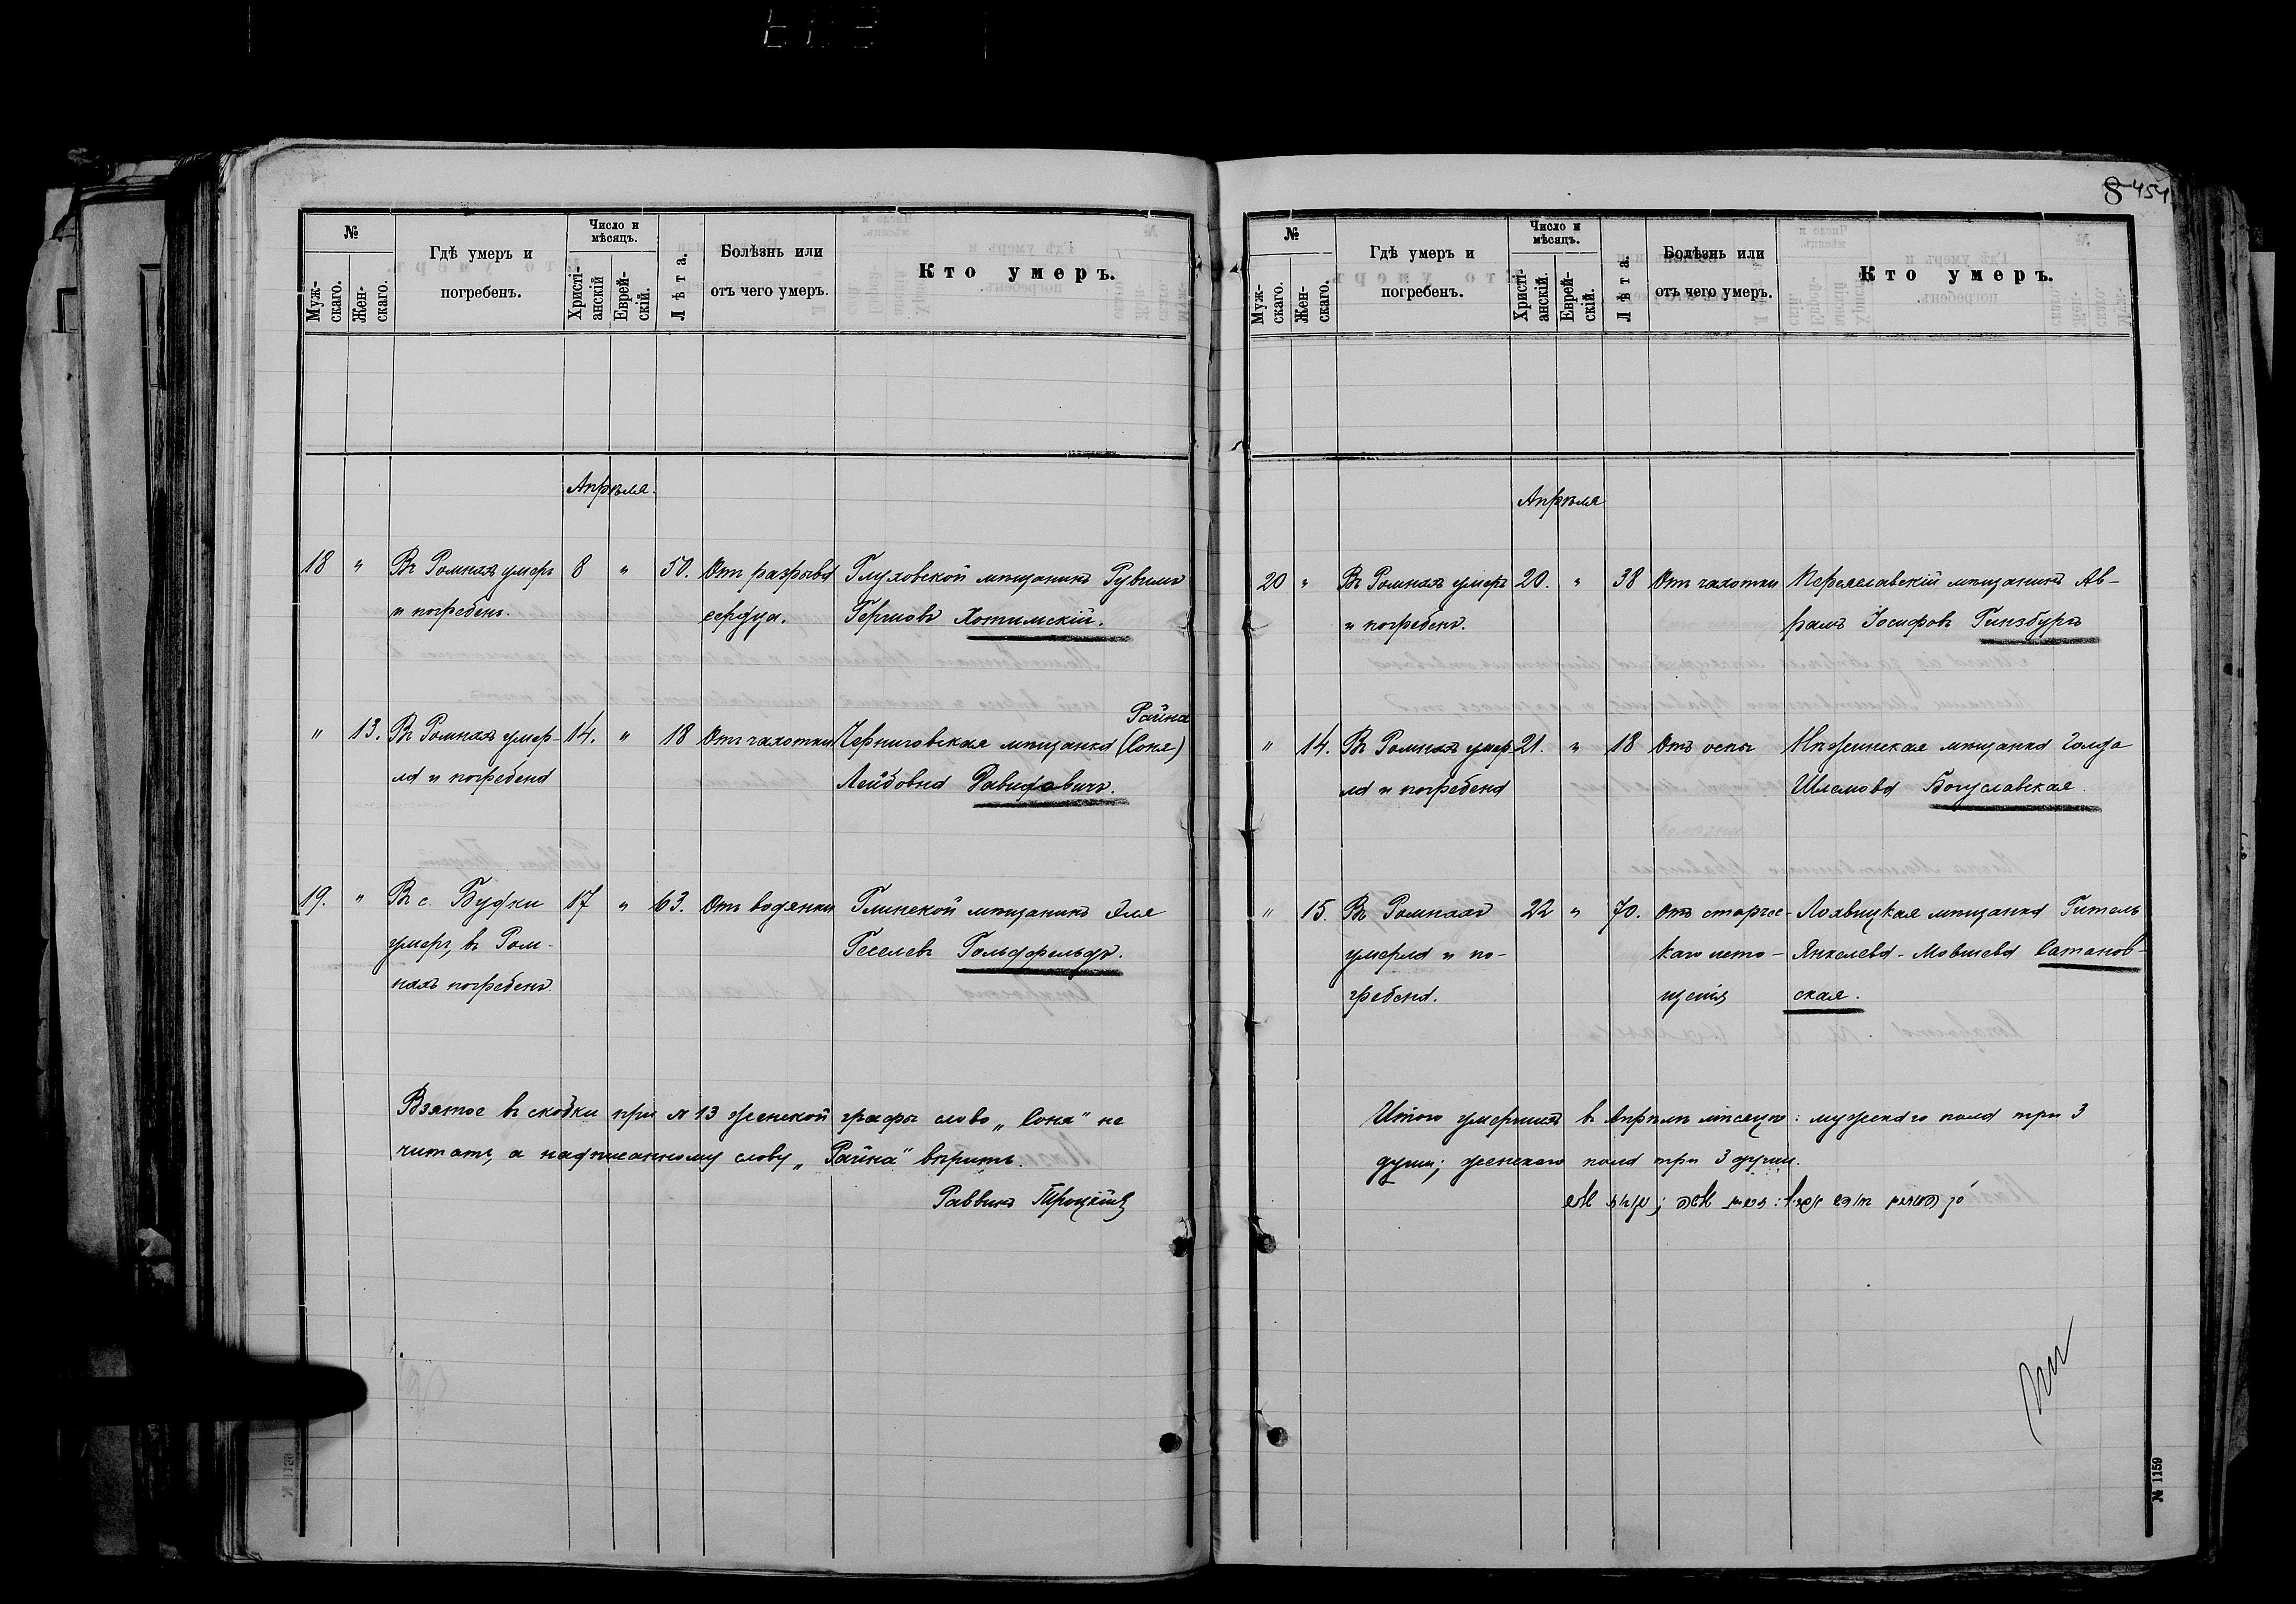 8 454
№
Муж-
скаго.
Жен-
скаго.
Гдѣ умеръ и
погребенъ.
Число и
мѣсяцъ.
Христі-
анскій
Еврей-
скій.
Лѣта.
Болѣзнь или
отъ чего умеръ.
Кто умеръ.
Апрѣля.
18 " Въ Ромнахъ умеръ 8 " 50. Отъ разрыва Глуховской мѣщанинъ Рувимъ
и погребенъ. сердца. Гершовъ Хотимскій.
Райна
" 13. Въ Ромнахъ умер- 14. " 18 Отъ чахотки Черниговская мѣщанка (Соня)
ла и погребена Лейбовна Давидовичъ.
19. " Въ с. Будки 17 " 63. Отъ водянки Глинской мѣщанинъ Эля
умеръ, въ Ром- Геселевъ Гольдфельдъ.
нахъ погребенъ.
Взятое въ скобки при № 13 женской графы слово „Соня" не
читать, а надписанному слову „Райна" вѣрить.
Раввинъ Троцкій
№
Муж-
скаго.
Жен-
скаго.
Гдѣ умеръ и
погребенъ.
Число и
мѣсяцъ.
Христі-
анскій.
Еврей-
скій.
Лѣта.
Болѣзнь или
отъ чего умеръ.
Кто умеръ.
Апрѣля
20 " Въ Ромнахъ умеръ 20. " 38 Отъ чахотки Переяславскій мѣщанинъ Ав-
и погребенъ. рамъ Іосифовъ Гинзбургъ
" 14. Въ Ромнахъ умер- 21. " 18 Отъ оспы Нѣжинская мѣщанка Голда
ла и погребена Шлемова Богуславская.
" 15. Въ Ромнахъ 22 " 70. Отъ старчес- Лохвицкая мѣщанка Гитель
умерла и по- каго исто- Янкелева-Мовшева Сатанов-
гребена. щенія ская.
Итого умершихъ въ Апрѣлѣ мѣсяцѣ: мужскаго пола три 3
души; женскаго пола три 3 души.
№ 1159